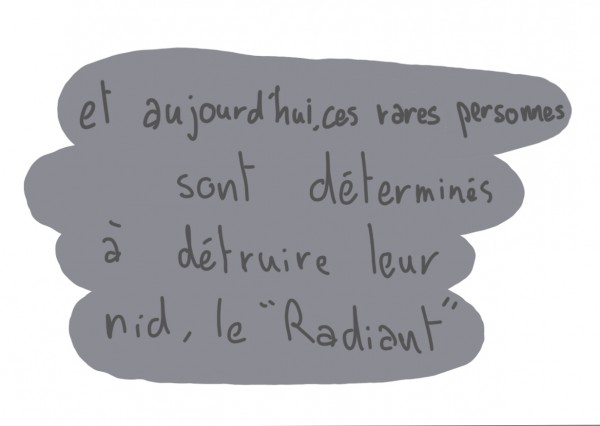 et aujourd'hui, ces rares personnes
sont déterminés
à détruire leur
nid, le "Radiant"